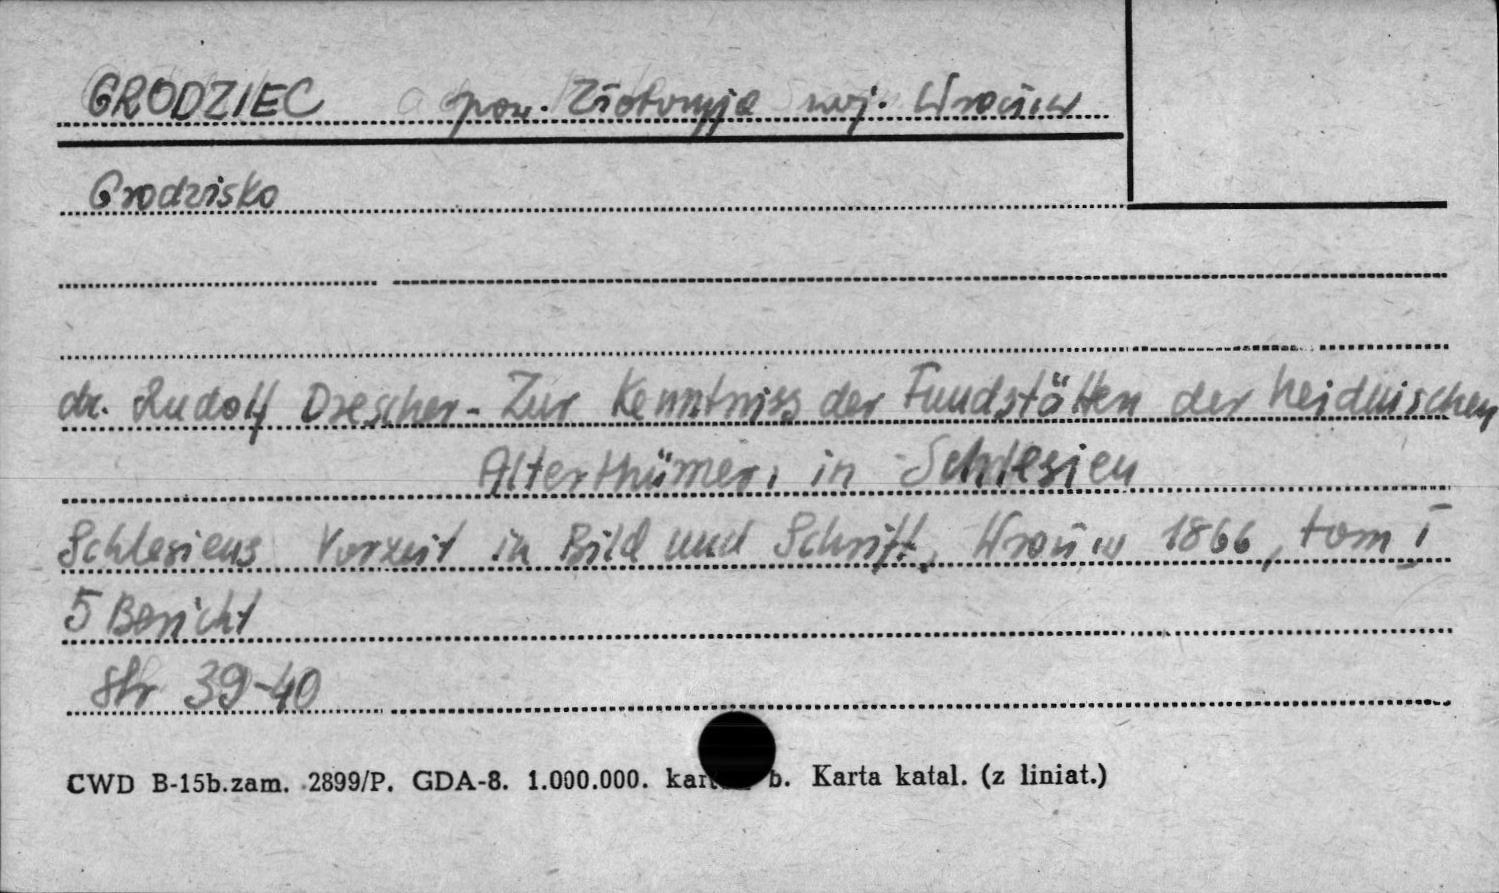 GRODZIEC pow. Złotoryja woj. Wrocław
Grodzisko
dr. Rudolf Drescher - Zur Kenntniss der Fundstätten der heidnischen
Alterthümer, in Schlesien
Schlesiens Vorzeit in Bild und Schrift, Wrocław 1866, tom I
5 Bericht
str 39-40
CWD B-15b.zam. 2899/P. GDA-8. 1.000.000. b. Karta katal. (z liniat.)